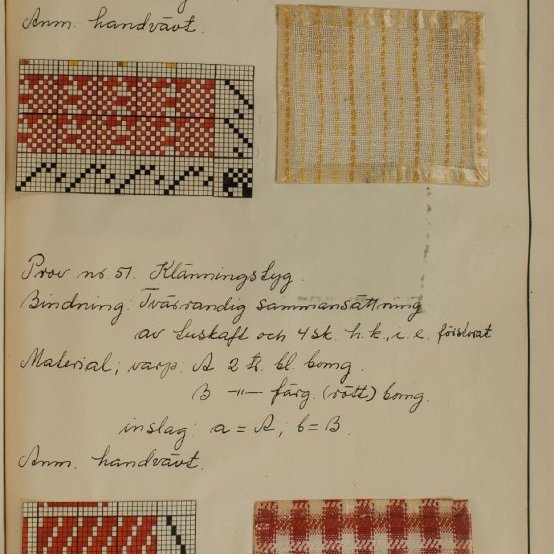 Anm. handvävt.
Prov nr. 51. Klänningstyg.
Bindning: Tvärrandig sammansättning
av tuskaft och 4 sk. h.k., i. e. förstorat
Material; varp: A 2 tr. bl. bomg.
B -"- färg. (rött) bomg.
inslag: a = A; b = B.
Anm. handvävt.